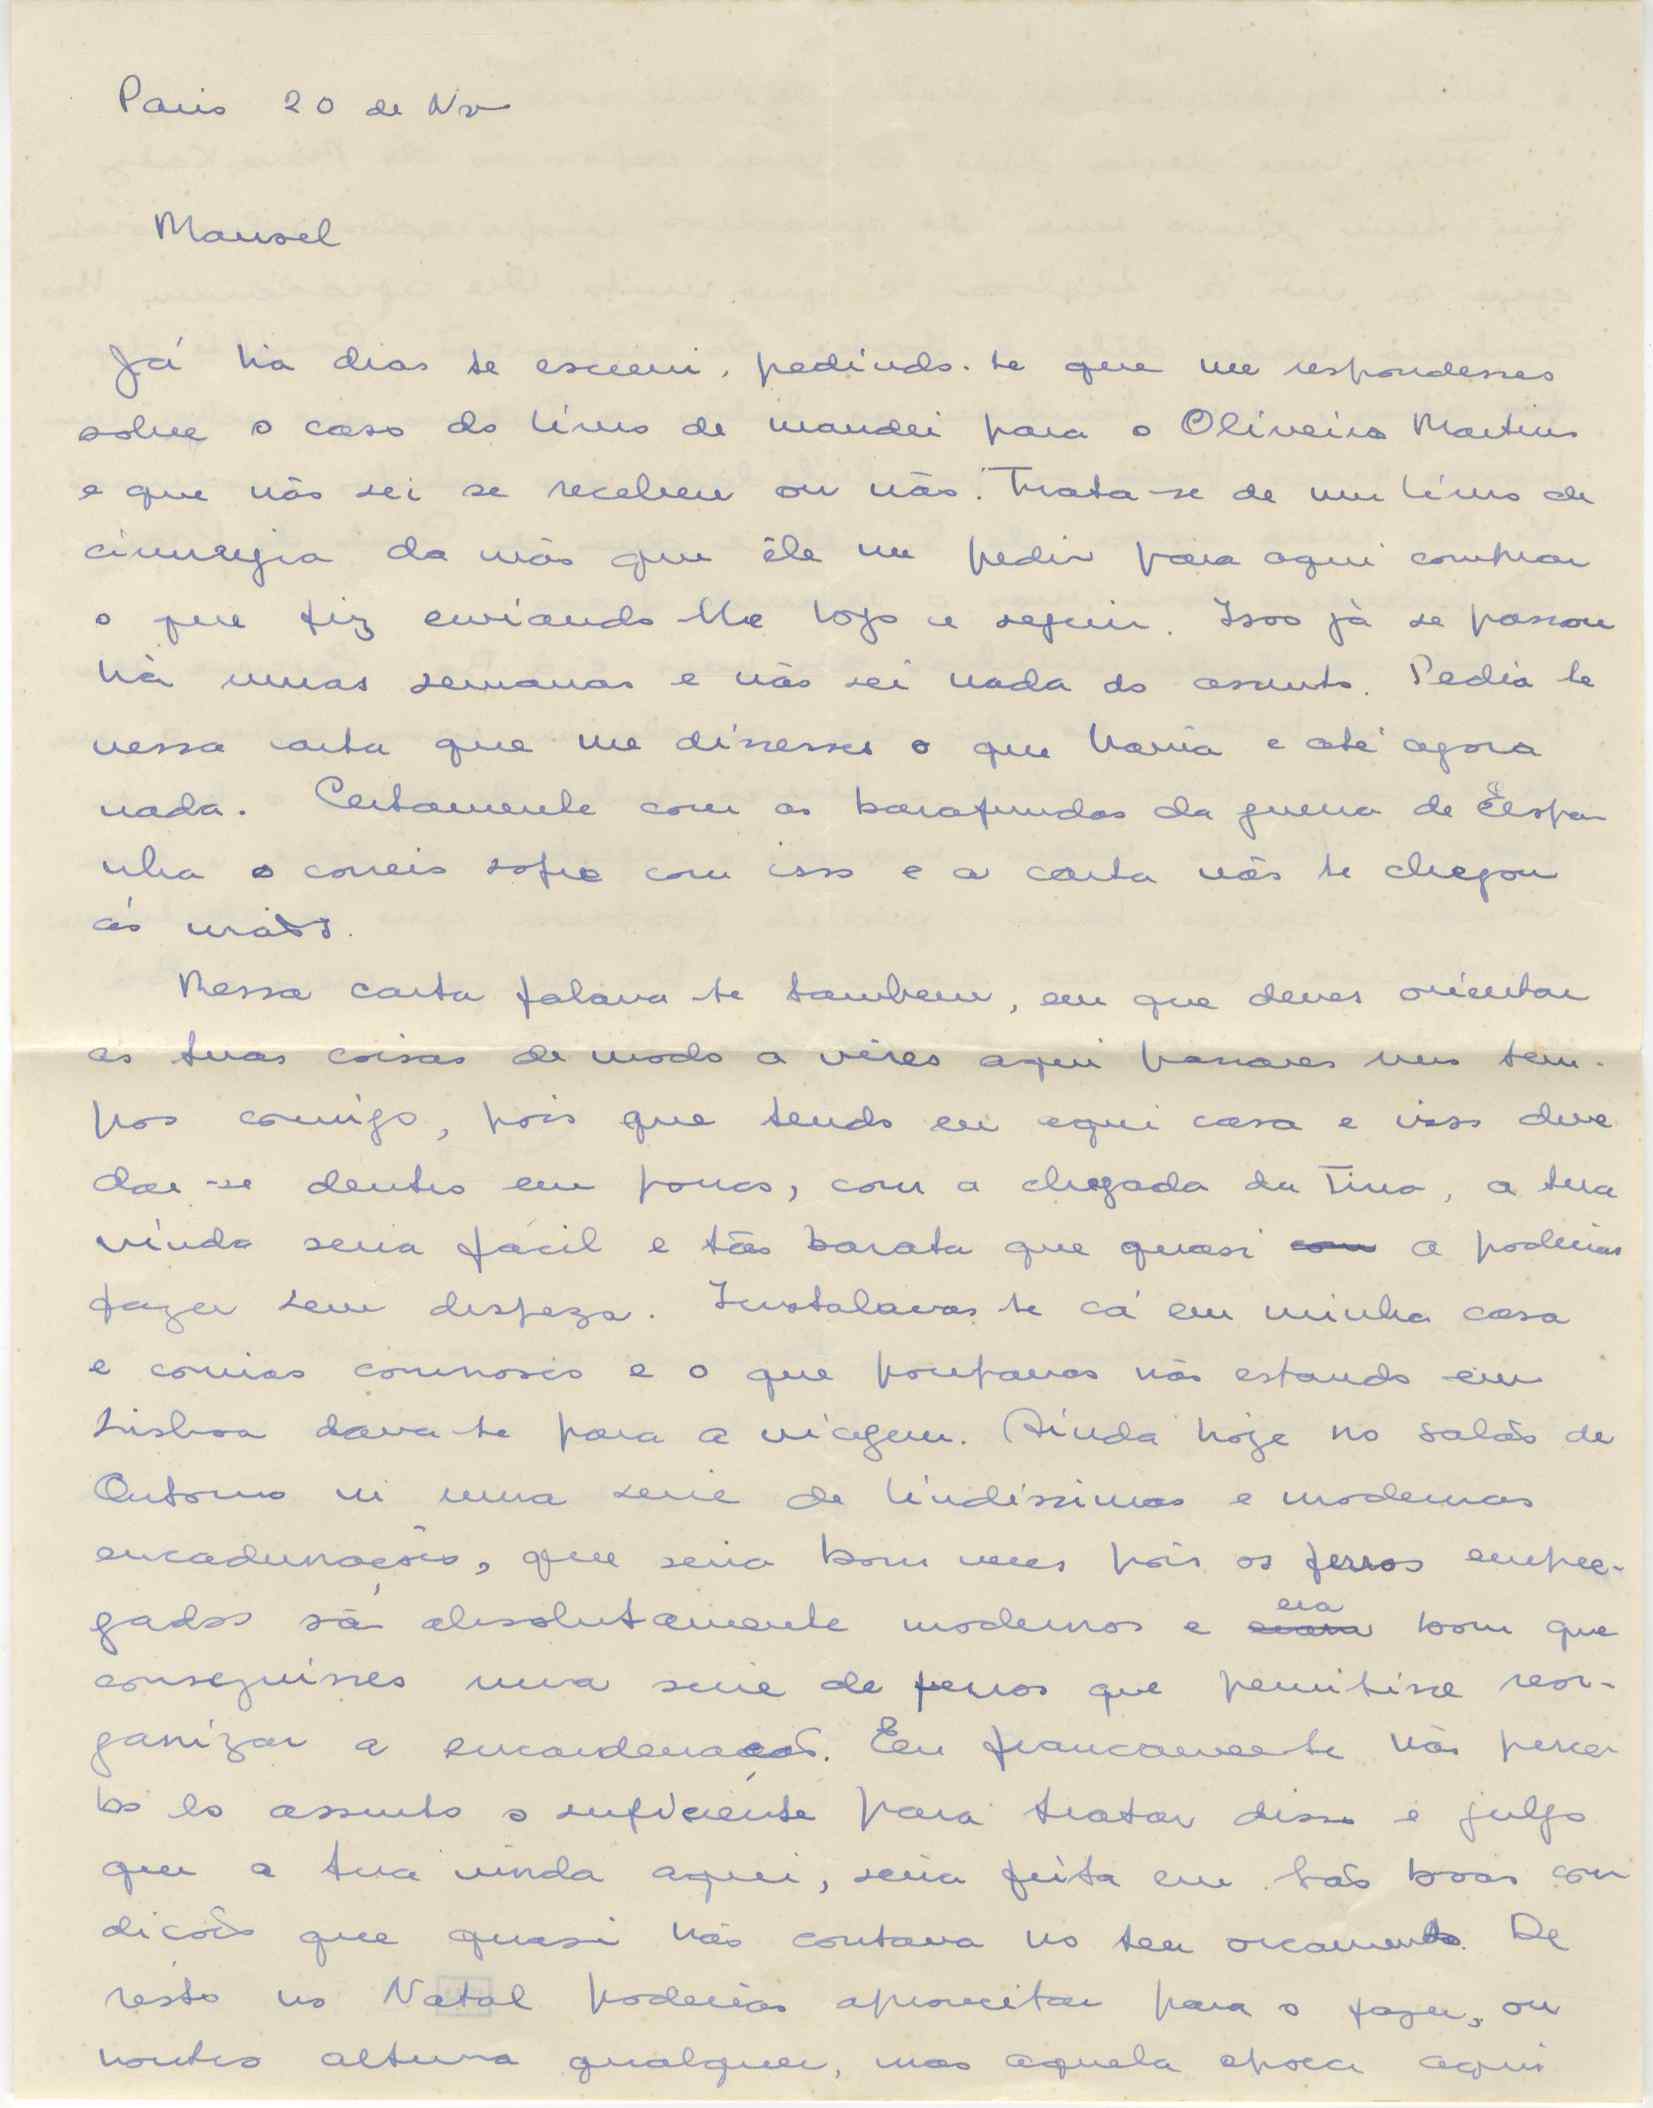 Paris 20 de Nov
Manoel
Já há dias te escrevi, pedindo-te que me respondesses
sobre o caso do livro de mandei para o Oliveira Martins
e que não sei se recebeu ou não. Trata-se de um livro de
cirurgia da mão que êle me pediu para aqui comprar
o que fiz enviando-lhe logo a seguir. Isso já se passou
há umas semanas e não sei nada do assunto. Pedia te
nessa carta que me dissesses o que havia e até agora
nada. Certamente com as barafundas da guerra de Espa-
nha o correio sofre com isso e a carta não te chegou
ás mãos.
Nessa carta falava-te tambem, em que deves orientar
as tuas coisas de modo a vires aqui passares uns tem-
pos comigo, pois que tendo eu aqui casa e isso deve
dar-se dentro em pouco, com a chegada da Tina, a tua
vinda seria fácil e tão barata que quasi com a poderias
fazer sem despeza. Instalavas te cá em minha casa
e comias connosco e o que poupavas não estando em
Lisboa dava-te para a viagem. Ainda hoje no salão de
Outomno vi uma serie de lindissimas e modernas
encadernações, que seria bom veres pois os ferros empre-
gados são absolutamente modernos e era bom que
conseguisses uma serie de ferros que permitisse reor-
ganizar a encardenação. Eu francamente não perce-
bo do assunto o suficiente para tratar disso e julgo
que a tua vinda aqui, seria feita em tão boas con
dicões que quasi não contava no teu orcamento. De
resto no Natal poderias aproveitar para o fazer, ou
noutra altura qualquer, mas aquela epoca aqui